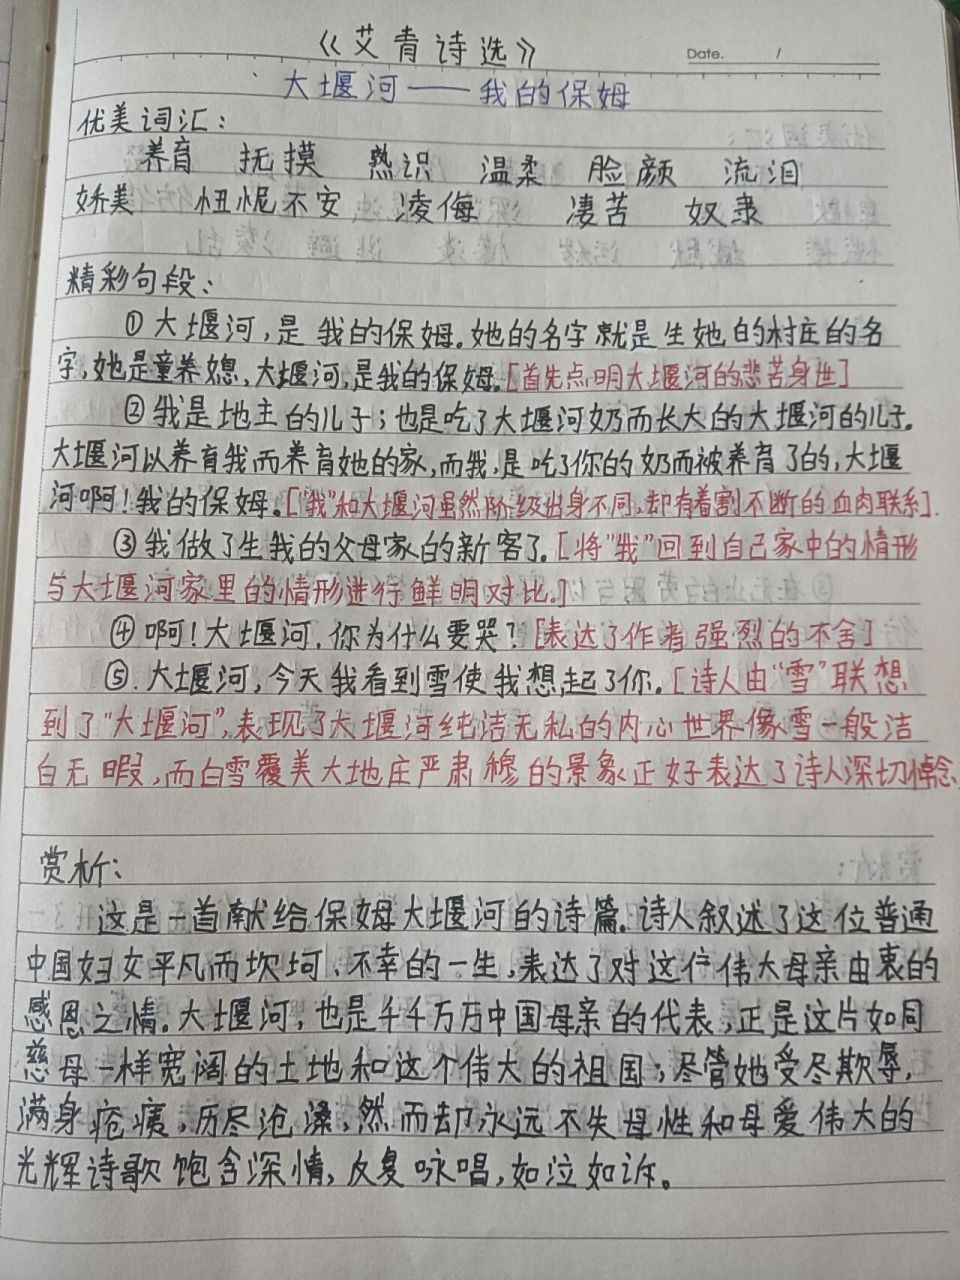 《艾青诗选》
Date. /
大堰河——我的保姆
优美词汇：
养育 抚摸 熟识 温柔 脸颜 流泪
娇美 忸怩不安 凌侮 凄苦 奴隶
精彩句段：
①大堰河，是我的保姆。她的名字就是生她的村庄的名
字，她是童养媳，大堰河，是我的保姆。[首先点明大堰河的悲苦身世]
②我是地主的儿子；也是吃了大堰河奶而长大的大堰河的儿子。
大堰河以养育我而养育她的家，而我，是吃了你的奶而被养育了的，大堰
河啊！我的保姆。["我"和大堰河虽然阶级出身不同，却有着割不断的血肉联系].
③我做了生我的父母家的新客了。[将"我"回到自己家中的情形
与大堰河家里的情形进行鲜明对比。]
④啊！大堰河，你为什么要哭？[表达了作者强烈的不舍]
⑤.大堰河，今天我看到雪使我想起了你。[诗人由"雪"联想
到了"大堰河"，表现了大堰河纯洁无私的内心世界像雪一般洁
白无暇，而白雪覆美大地庄严肃穆的景象正好表达了诗人深切悼念.
赏析：
这是一首献给保姆大堰河的诗篇。诗人叙述了这位普通
中国妇女平凡而坎坷、不幸的一生，表达了对这位伟大母亲由衷的
感恩之情。大堰河，也是千千万万中国母亲的代表，正是这片如同
慈母一样宽阔的土地和这个伟大的祖国；尽管她受尽欺辱，
满身疮痍，历尽沧桑，然而却永远不失母性和母爱伟大的
光辉诗歌饱含深情，反复咏唱，如泣如诉。